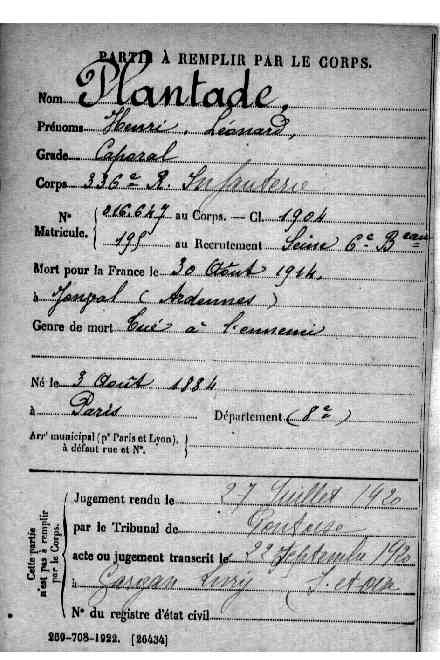 PARTIE À REMPLIR PAR LE CORPS.
Nom Plantade,
Prénoms Henri, Léonard,
Grade Caporal
Corps 336e R. Infanterie
N° Matricule. { 016.647 au Corps. — Cl. 1904
195 au Recrutement Seine 6e Beau
Mort pour la France le 30 Août 1914.
à (Ardennes)
Genre de mort Tué à l'ennemi
Né le 3 Août 1884
à Paris Département (8e)
Arrt municipal (pr Paris et Lyon), à défaut rue et N°. {
Cette partie n'est pas à remplir par le Corps.
Jugement rendu le 27 Juillet 1920
par le Tribunal de Pontoise
acte ou jugement transcrit le 22 Septembre 1920
à Gargan Livry S. et Oise
N° du registre d'état civil
269-708-1922. [26434]